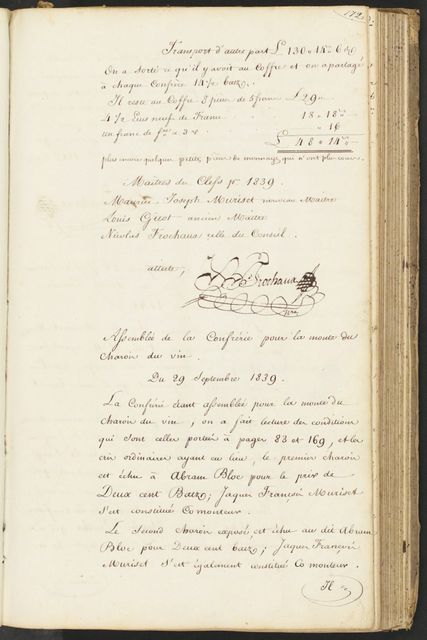 172
Transport d'autre part L 130 " 14 " 6
On a sorté ce qu'il y avoit au Coffre et on a partagé
à chaque Confrère 14½ batz.
Il reste au Coffre 8 pieces de 5 francs L 29 "
4½ Ecus neuf de France 18 " 18 "
un franc de " 16
L 48 " 14 "
plus encore quelques petites pieces de monnaye, qui n'ont plus cours.
Maîtres des Clefs pr 1839.
Maurice Joseph Muriset nouveau Maître
Louis Girot ancien Maître
Nicolas Frochaux celle du Conseil.
atteste,
Frochaux
Assemblée de la Confrérie pour la monte du
charoi du vin.
Du 29 Septembre 1839.
La Confrérie étant assemblée pour la monte du
charoi du vin, on a fait lecture des conditions
qui sont celles portées à pages 83 et 169, et les
cris ordinaires ayant eu lieu, le premier charoi
est échu à Abram Bloc pour le prix de
Deux cent Batz; Jaques François Muriset
s'est constitué Comonteur.
Le Second charoi exposé est échu au dit Abram
Bloc pour Deux cent batz; Jaques François
Muriset s'est également constitué Comonteur.
Il